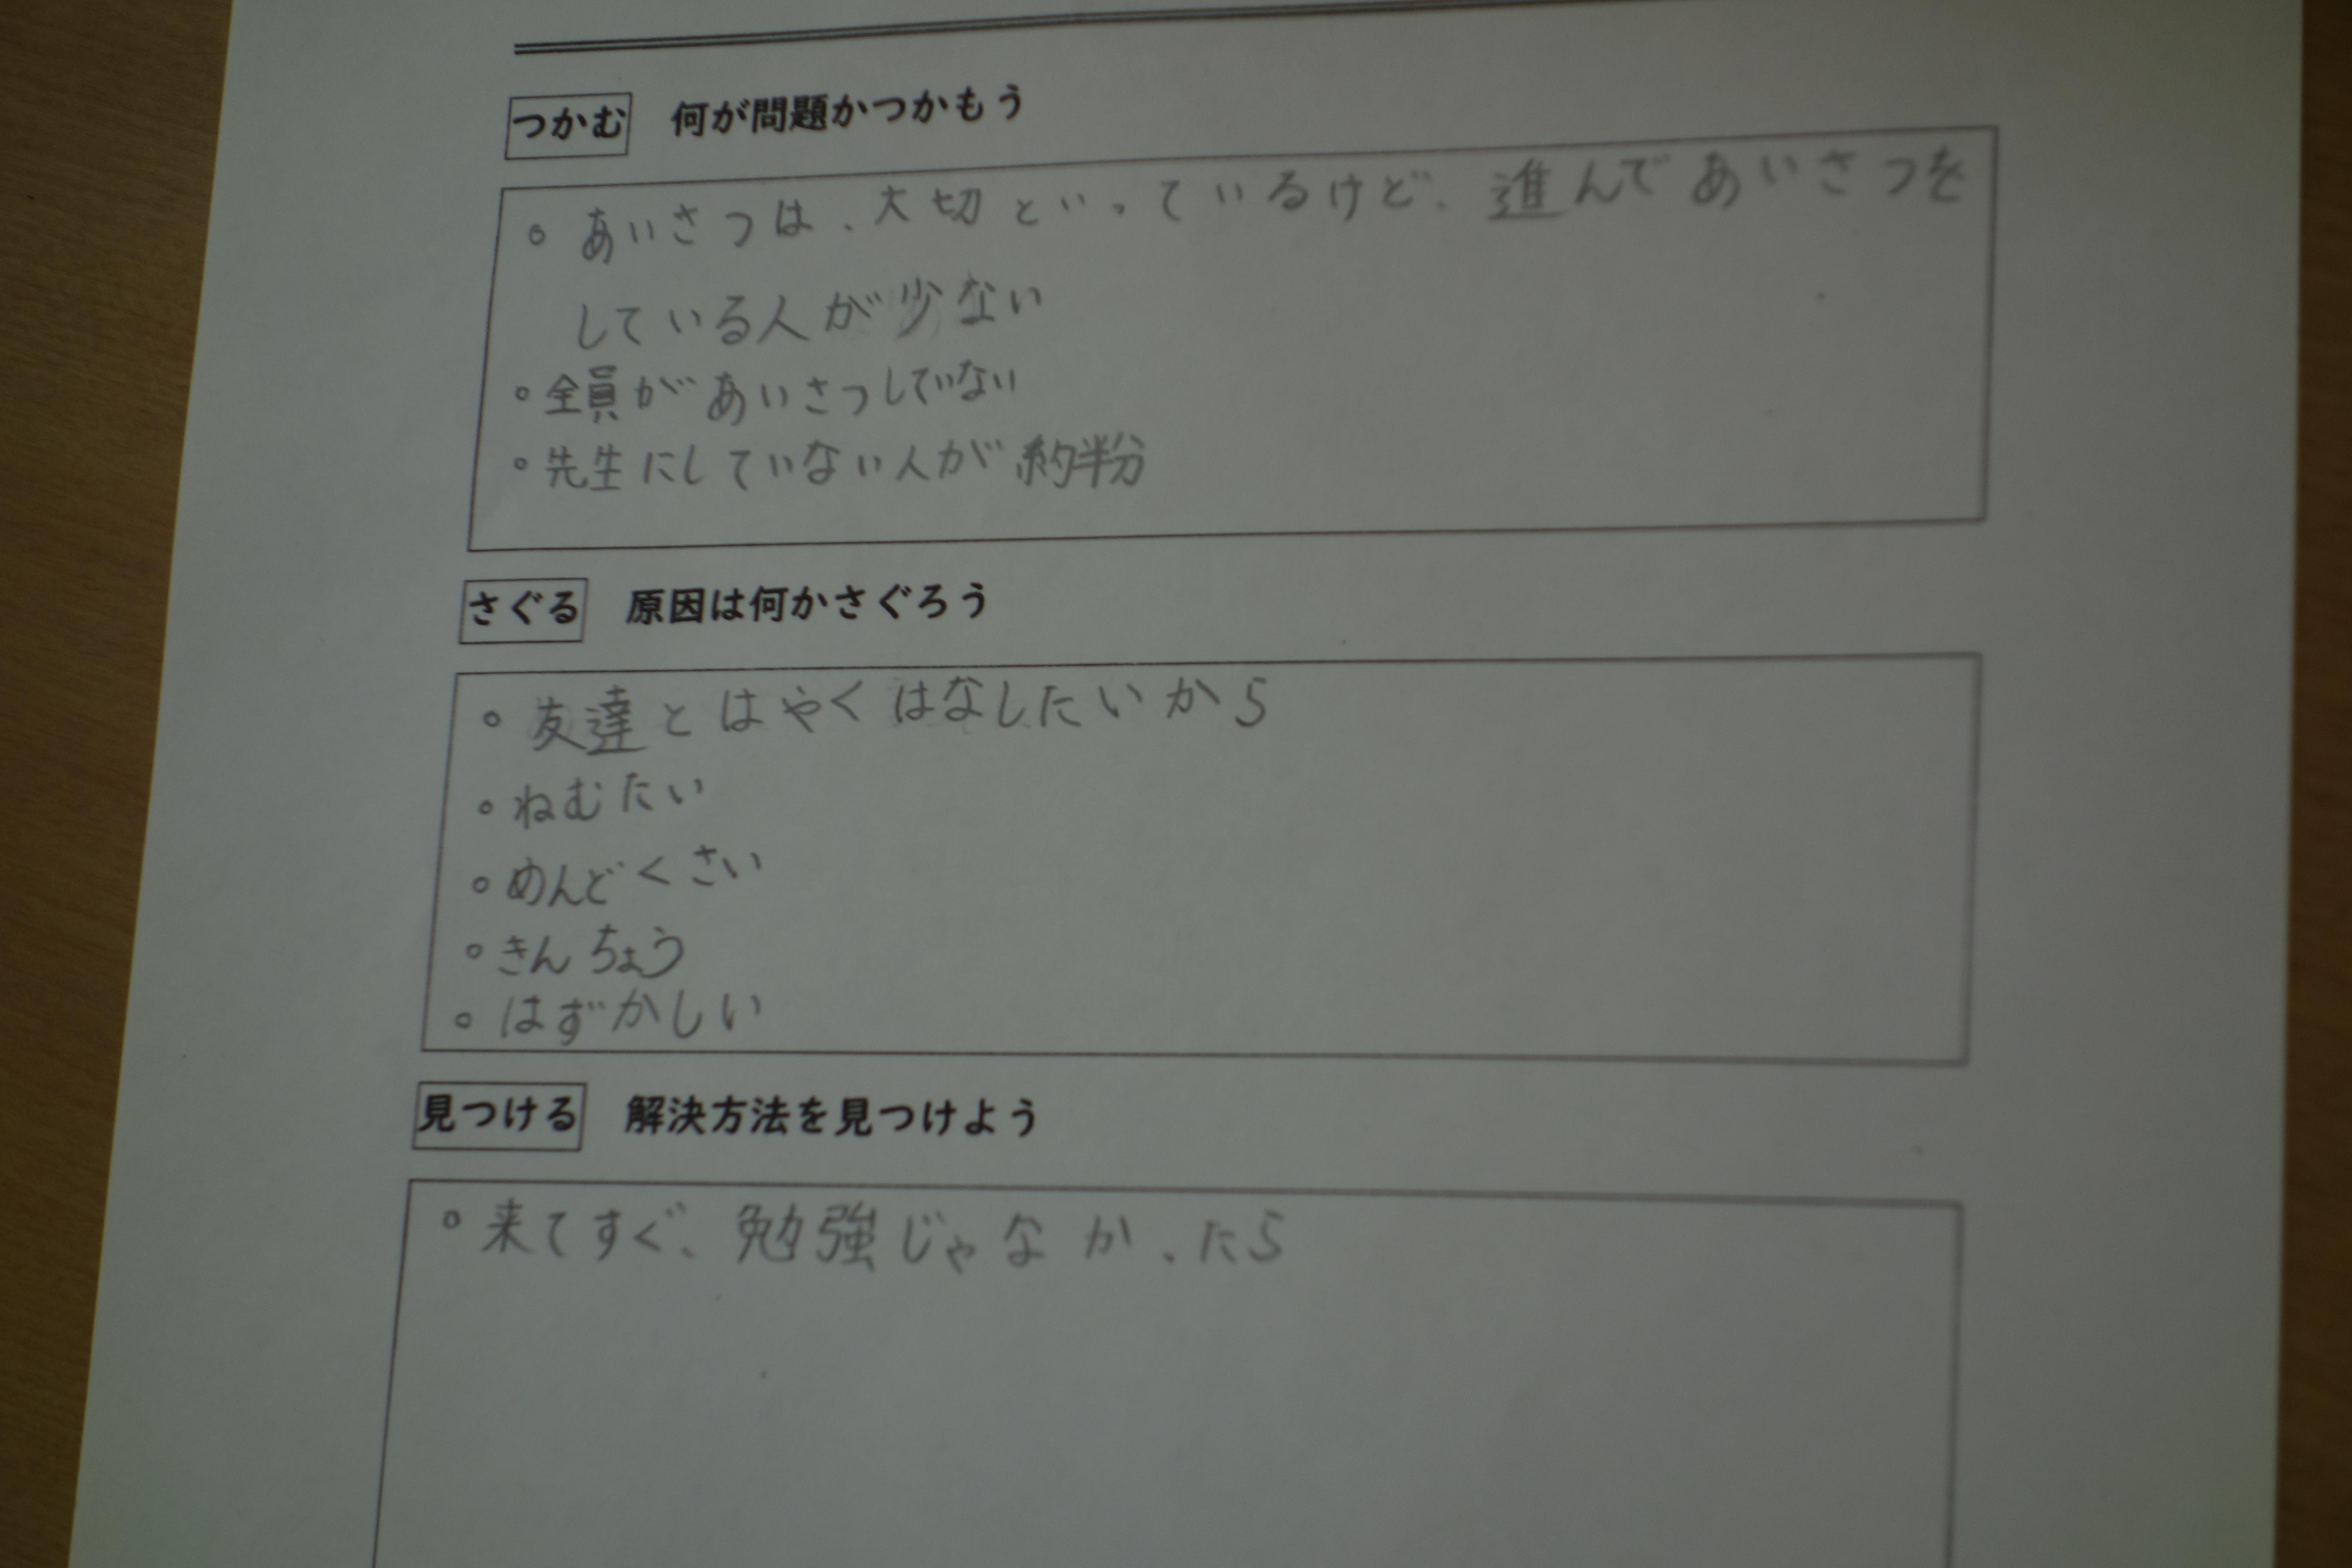 つかむ 何が問題かつかもう
。あいさつは、大切といっているけど、進んであいさつを
している人が少ない
。全員があいさつしていない
。先生にしていない人が約半分
さぐる 原因は何かさぐろう
。友達とはやくはなしたいから
。ねむたい
。めんどくさい
。きんちょう
。はずかしい
見つける 解決方法を見つけよう
。来てすぐ、勉強じゃなかったら